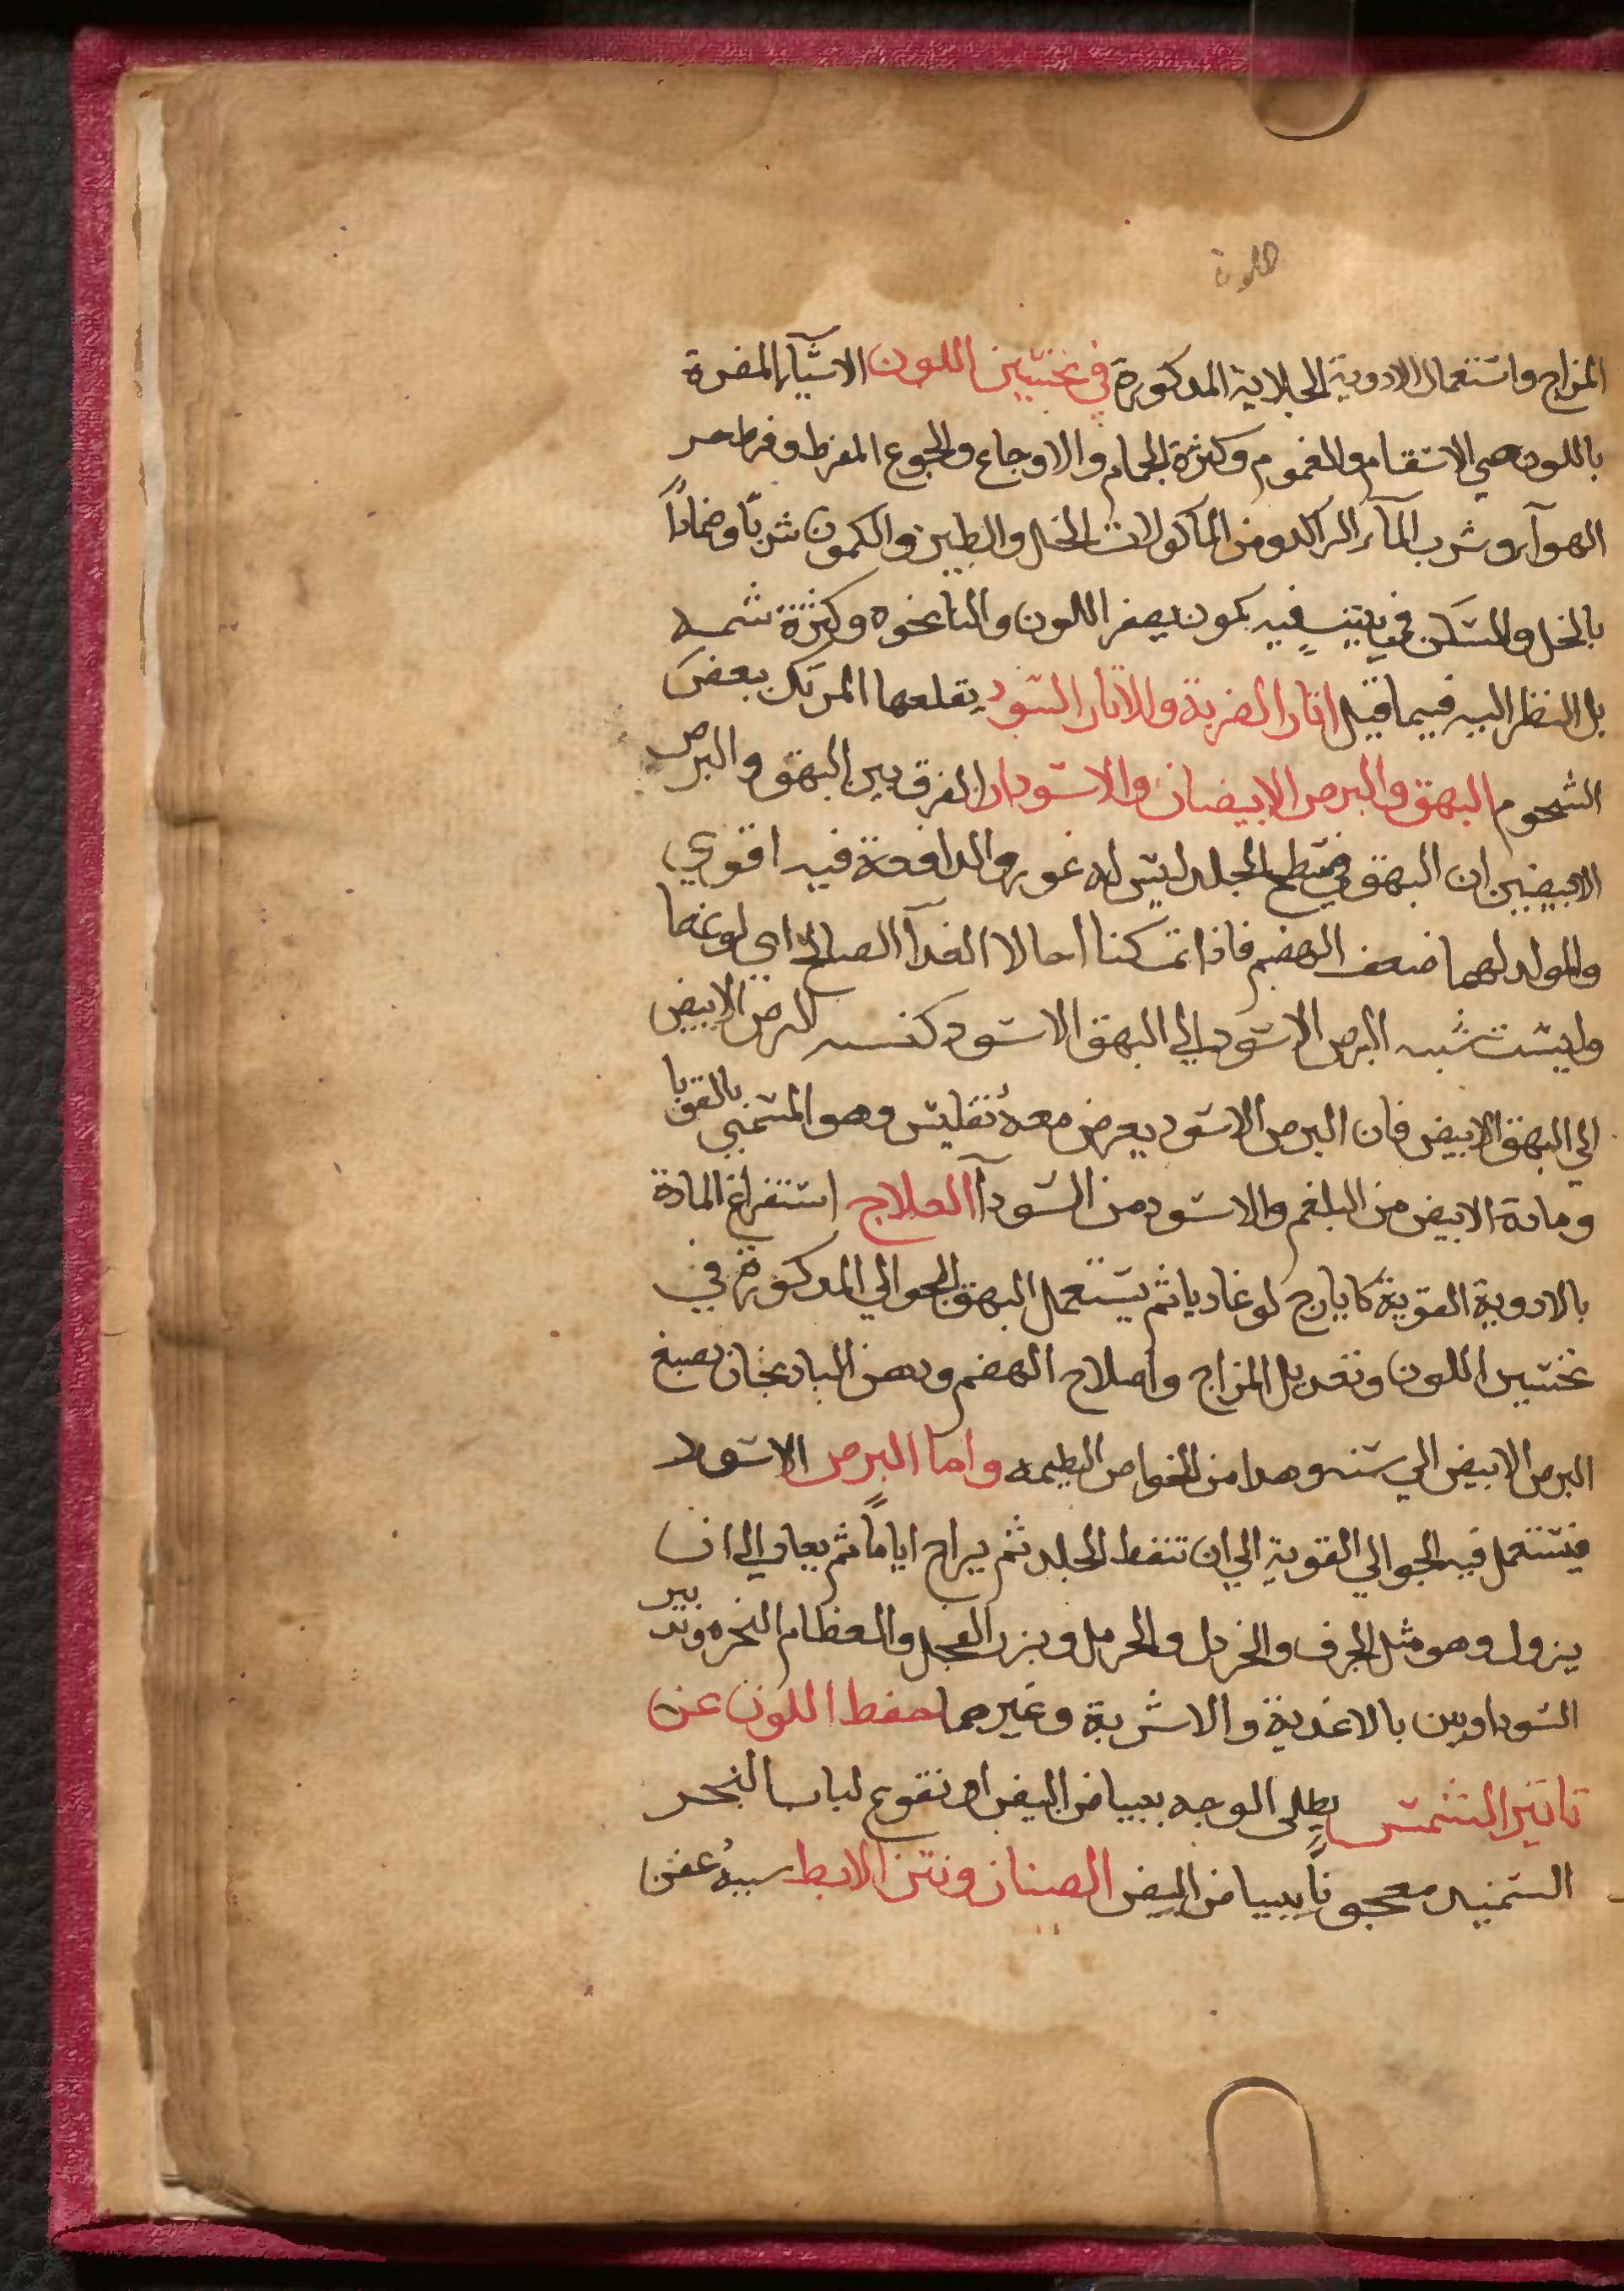 المزاج واستعمال الادوية الجلاية المدكورة في تحسين اللون الاشيآء المضرة
باللون هي الاسقام والغموم وكثرة الجماع والاوجاع والجوع المفرط وفرط حر
الهوآء وشرب المآء الراكد ومن الماكولات الخل والطين والكمون شربًا وضمادًا
بالخل والسكن في بيت فيه كمون يصفر اللون والنانخوه وكثرة شمه
بل النظر اليه فيما قيل اثار الضربة والاثار السود يقلعها المرتك ببعض
الشحوم البهق والبرص الابيضان والاسودان الفرق بين البهق والبرص
الابيضين ان البهق في سطح الجلد ليس له غور والدافعة فيه اقوي
والمولد لهما ضعف الهضم فاذا تمكنا احالا الغدآ الصالح الي نوعهما
وليست نسبه البرص الاسود الي البهق الاسود كنسبه البرص الابيض
الي البهق الابيض فان البرص الاسود يعرض معه تفليس وهو المسمي بالقوبا
ومادة الابيض من البلغم والاسود من السودآ العلاج استفراغ المادة
بالادوية القوية كايارج لوغاديا ثم يستعمل البهق الجوالي المدكورة في
تحسين اللون وتعديل المزاج واصلاح الهضم ودهن البادنجان يصبغ
البرص الابيض الي سنه وهدا من الخواص العظيمه واما البرص الاسود
فيستعمل فيه الجوالي القوية الي ان تنفط الجلد ثم يراح اياماً ثم يعاد الي ان
يزول وهو مثل الحرف والخردل والحرمل وبزر الفجل والعظام النخره وتدبير
السوداويين بالاغدية والاشربة وغيرهما حفظ اللون عن
تاثير الشمس يطلى الوجه ببياض البيض او نقوع لباب الخبز
السميد معجونًا ببياض البيض الصنان ونتن الابط سببهُ عفن